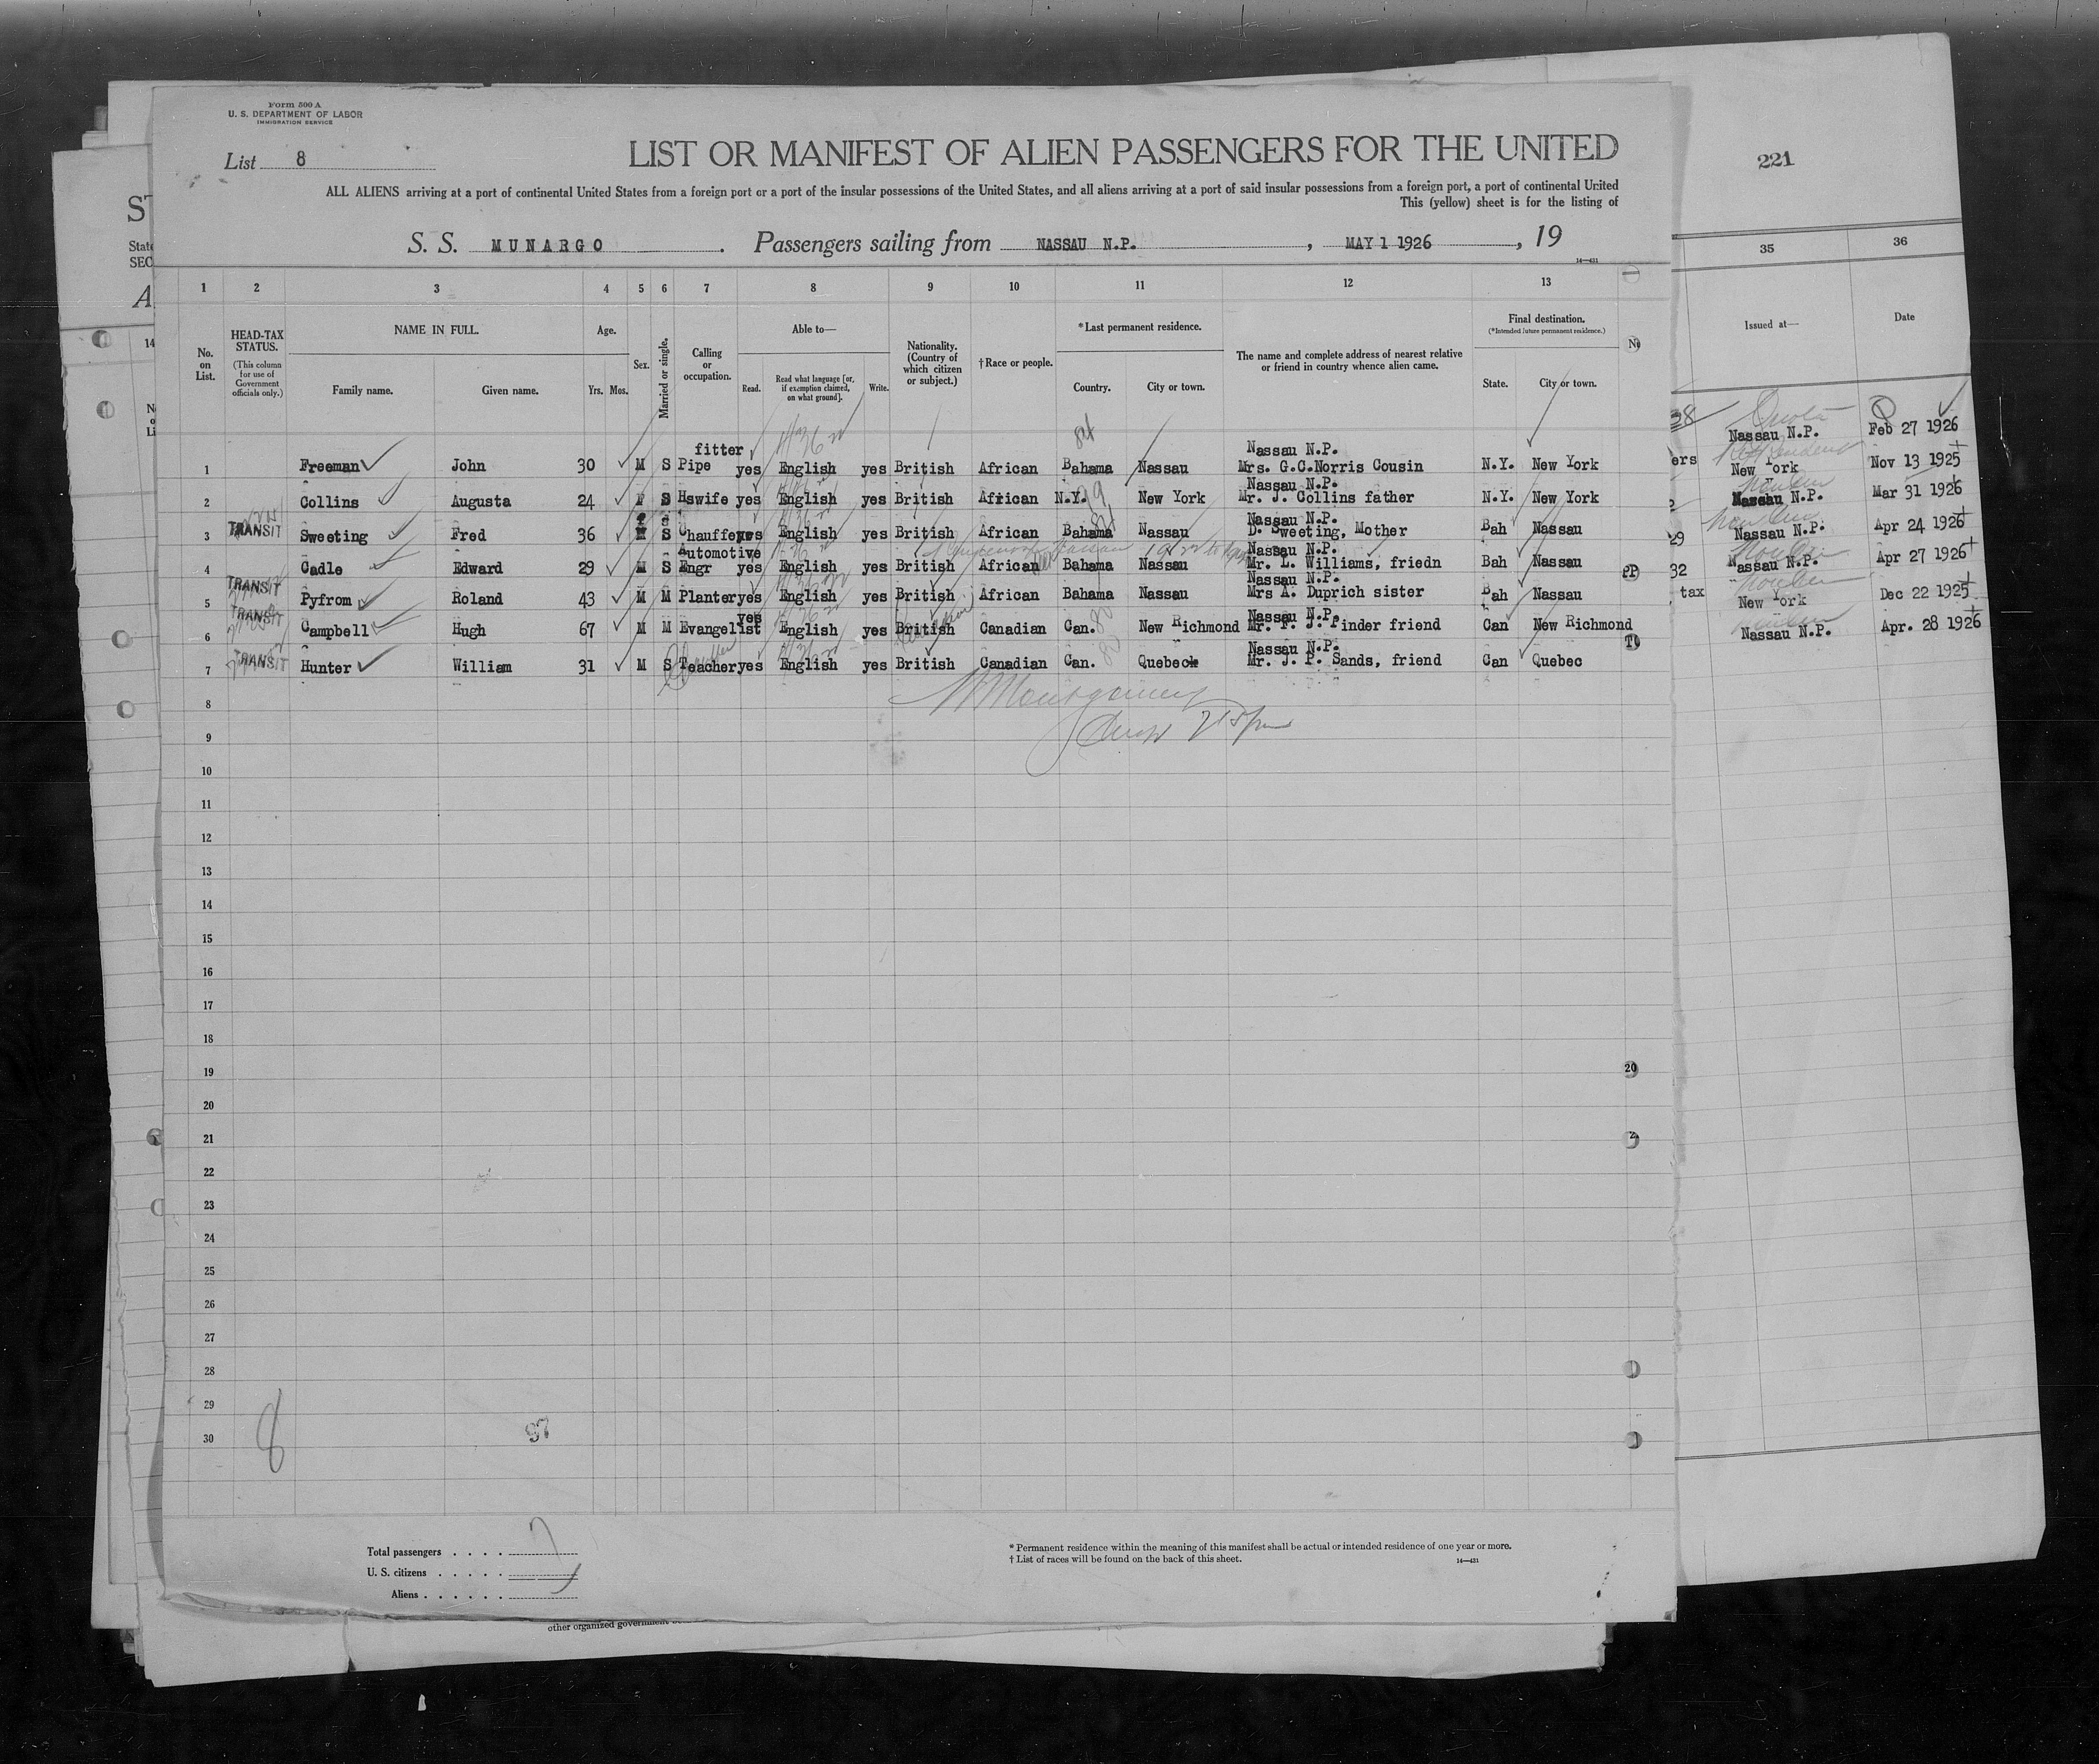 Form 500 A
U. S. DEPARTMENT OF LABOR
IMMIGRATION SERVICE
List 8
LIST OR MANIFEST OF ALIEN PASSENGERS FOR THE UNITED
221
ALL ALIENS arriving at a port of continental United States from a foreign port or a port of the insular possessions of the United States, and all aliens arriving at a port of said insular possessions from a foreign port, a port of continental United
This (yellow) sheet is for the listing of
S. S. MUNARGO . Passengers sailing from NASSAU N.P. , MAY 1 1926 , 19
14—431
1 2 3 4 5 6 7 8 9 10 11 12 13 35 36
No. on List.
HEAD-TAX STATUS.
(This column for use of Government officials only.)
NAME IN FULL.
Family name. Given name.
Age.
Yrs. Mos.
Sex.
Married or single.
Calling or occupation.
Able to—
Read. Read what language [or, if exemption claimed, on what ground]. Write.
Nationality. (Country of which citizen or subject.)
†Race or people.
*Last permanent residence.
Country. City or town.
The name and complete address of nearest relative or friend in country whence alien came.
Final destination.
(*Intended future permanent residence.)
State. City or town.
Issued at— Date
fitter Nassau N.P.
1 Freeman John 30 M S Pipe yes English yes British African Bahama Nassau Mrs. G.C.Norris Cousin N.Y. New York Nassau N.P. Feb 27 1926
Nassau N.P.
2 Collins Augusta 24 F S Hswife yes English yes British African N.Y. New York Mr. J. Collins father N.Y. New York New York Nov 13 1925
Nassau N.P.
3 TRANSIT Sweeting Fred 36 M S Chauffeur yes English yes British African Bahama Nassau D. Sweeting, Mother Bah Nassau Nassau N.P. Mar 31 1926
Automotive Nassau N.P.
4 Cadle Edward 29 M S Engr yes English yes British African Bahama Nassau Mr. L. Williams, friedn Bah Nassau Nassau N.P. Apr 24 1926
Nassau N.P.
5 TRANSIT Pyfrom Roland 43 M M Planter yes English yes British African Bahama Nassau Mrs A. Duprich sister Bah Nassau Nassau N.P. Apr 27 1926
yes Nassau N.P.
6 TRANSIT Campbell Hugh 67 M M Evangelist English yes British Canadian Can. New Richmond Mr. F. J. Pinder friend Can New Richmond New York Dec 22 1925
Nassau N.P.
7 TRANSIT Hunter William 31 M S Teacher yes English yes British Canadian Can. Quebec Mr. J. P. Sands, friend Can Quebec Nassau N.P. Apr. 28 1926
8
9
10
11
12
13
14
15
16
17
18
19
20
21
22
23
24
25
26
27
28
29
30
8
97
Total passengers . . . . 7
U. S. citizens . . . . .
Aliens . . . . . . 7
* Permanent residence within the meaning of this manifest shall be actual or intended residence of one year or more.
† List of races will be found on the back of this sheet. 14—431
other organized government